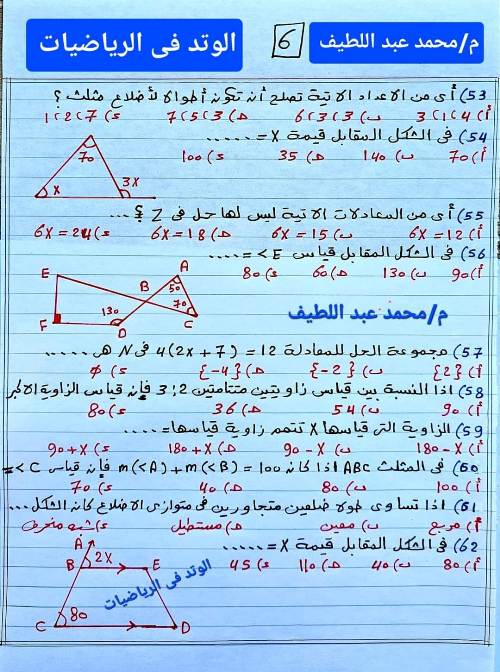 م/محمد عبد اللطيف 6 الوتد فى الرياضيات
53) أى من الاعداد الاتية تصلح أن تكون أطوالا لأضلاع مثلث ؟
أ) 4 ، 1 ، 3 ب) 3 ، 3 ، 6 ه) 3 ، 5 ، 7 ء) 7 ، 2 ، 1
54) فى الشكل المقابل قيمة X = .....
أ) 70 ب) 140 ه) 35 ء) 100
70
X 3X
55) أى من المعادلات الاتية ليس لها حل فى Z ؟ ...
أ) 6X = 12 ب) 6X = 15 ه) 6X = 18 ء) 6X = 24
56) فى الشكل المقابل قياس E> = ....
أ) 90 ب) 130 ه) 60 ء) 80
A
E B 50
70 C
130
F D
م/محمد عبد اللطيف
57) مجموعة الحل للمعادلة 4(2x + 7) = 12 فى N هى .....
أ) {2} ب) {-2} ه) {-4} ء) ∅
58) اذا النسبة بين قياس زاويتين متتامتين 2:3 فإن قياس الزاوية الاكبر
أ) 90 ب) 54 ه) 36 ء) 80
59) الزاوية التى قياسها X تتمم زاوية قياسها = ....
أ) 180 - X ب) 90 - X ه) 180 + X ء) 90 + X
60) فى المثلث ABC اذا كان m(<A) + m(<B) = 100 فإن قياس C> =
أ) 100 ب) 80 ه) 40 ء) 70
61) اذا تساوى طولا ضلعين متجاورين فى متوازى الاضلاع كان الشكل ...
أ) مربع ب) معين ه) مستطيل ء) شبه منحرف
62) فى الشكل المقابل قيمة X = .....
أ) 80 ب) 40 ه) 110 ء) 45
A
B 2X E
الوتد فى الرياضيات
80
C D